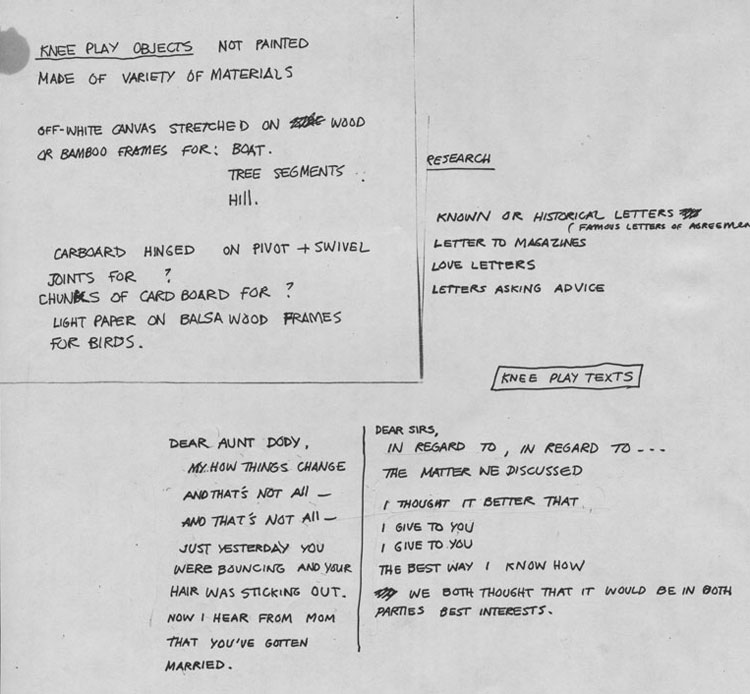 KNEE PLAY OBJECTS NOT PAINTED
MADE OF VARIETY OF MATERIALS
OFF-WHITE CANVAS STRETCHED ON WOOD
OR BAMBOO FRAMES FOR: BOAT.
TREE SEGMENTS
Hill.
CARBOARD HINGED ON PIVOT + SWIVEL
JOINTS FOR ?
CHUNKS OF CARD BOARD FOR ?
LIGHT PAPER ON BALSA WOOD FRAMES
FOR BIRDS.
RESEARCH
KNOWN OR HISTORICAL LETTERS
(FAMOUS LETTERS OF AGREEMEN
LETTER TO MAGAZINES
LOVE LETTERS
LETTERS ASKING ADVICE
KNEE PLAY TEXTS
DEAR AUNT DODY,
MY HOW THINGS CHANGE
AND THAT'S NOT All —
AND THAT'S NOT All —
JUST YESTERDAY YOU
WERE BOUNCING AND YOUR
HAIR WAS STICKING OUT.
NOW I HEAR FROM MOM
THAT YOU'VE GOTTEN
MARRIED.
DEAR SIRS,
IN REGARD TO, IN REGARD TO ---
THE MATTER WE DISCUSSED
I THOUGHT IT BETTER THAT
I GIVE TO YOU
I GIVE TO YOU
THE BEST WAY I KNOW HOW
WE BOTH THOUGHT THAT IT WOULD BE IN BOTH
PARTIES BEST INTERESTS.